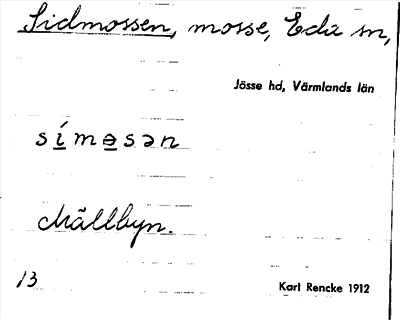 Sidmossen, mosse, Eda sn,
Jösse hd, Värmlands län
síməsən
Mällbyn.
13
Karl Rencke 1912